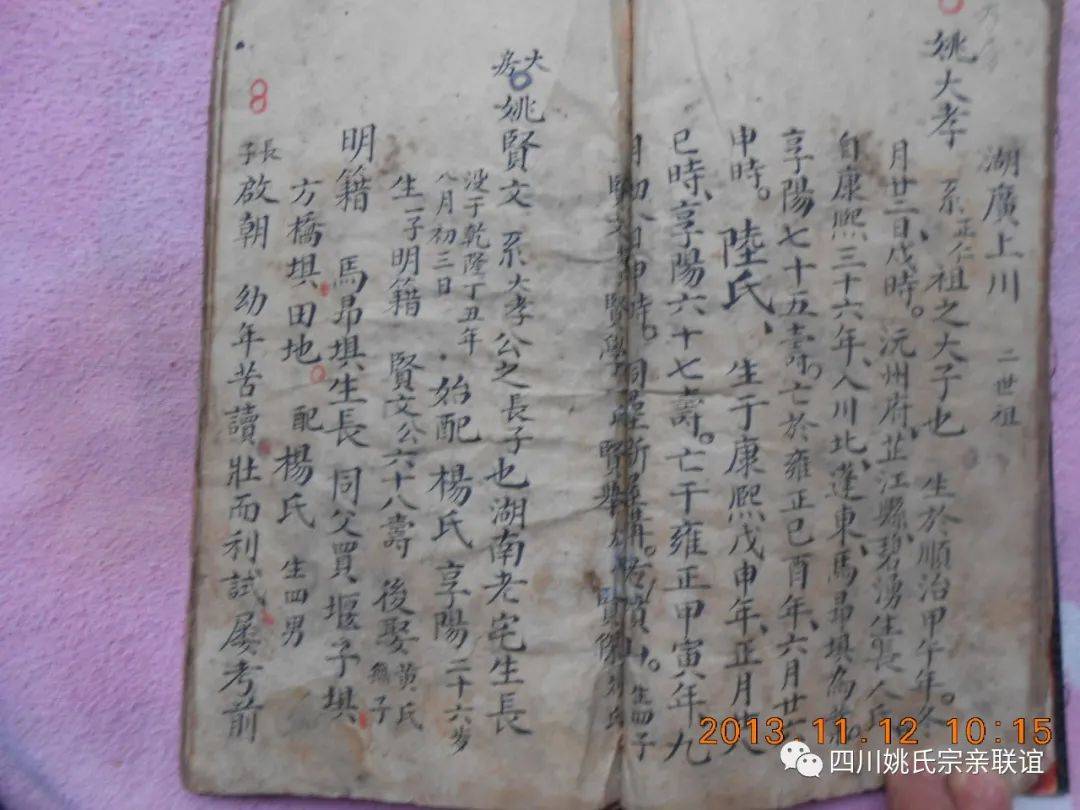 湖廣上川 二世祖
姚大孝 系正仁祖之大子也 生於順治甲午年。冬
月廿二日戌時。沅州府芷江縣碧湧生長人氏
自康熙三十六年、入川北、蓬東、馬昂埧為業。
享陽七十五壽。亡於雍正己酉年、六月廿
申時。陸氏、 生于康熙戊申年、正月
巳時、享陽六十七壽。亡于雍正甲寅年九
月初八日申時。同 生四子
賢文 賢學 賢 賢傑
大房 姚賢文 系大孝公之長子也湖南老宅生長
没于乾隆丁丑年
八月初三日 始配 楊氏 享陽二十六岁
生一子明籍 賢文公六十八壽 後娶黄氏無子
明籍 馬昂埧生長 同父買堰子埧
方橋埧田地。配楊氏 生四男
長子啟朝 幼年苦讀壯而利試屡考前
8
2013.11.12 10:15
四川姚氏宗亲联谊